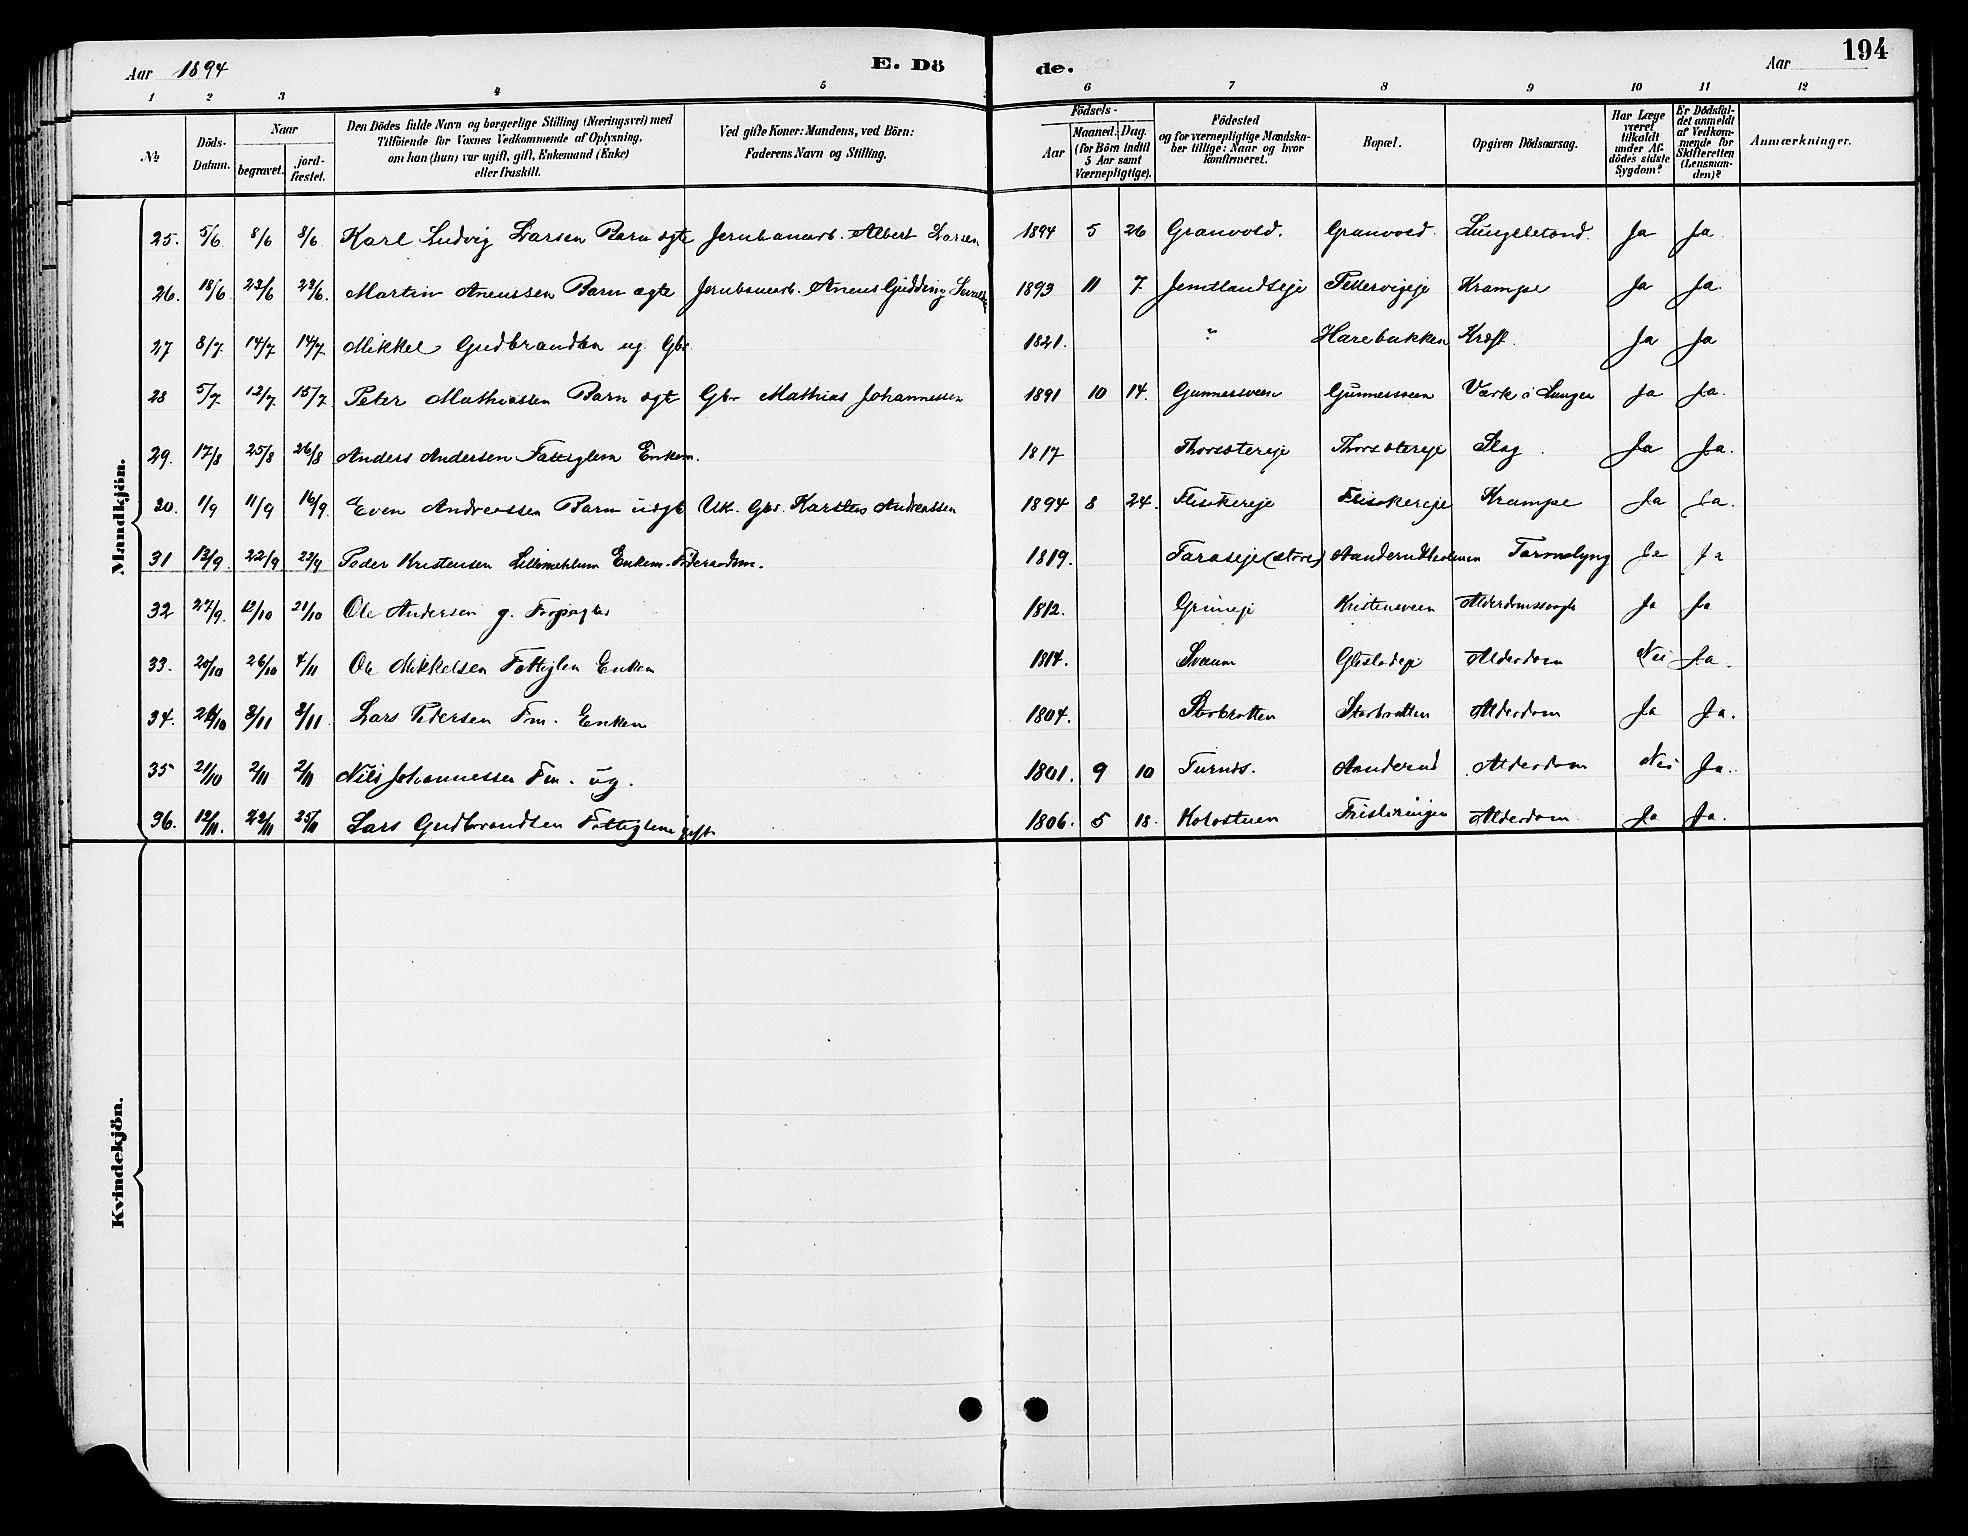 Aar 1894 E. Dö de. Aar 194
1 2 3 4 5 6 7 8 9 10 11 12
No
Döds-Datum.
Naar
begravet.
jord-fæstet.
Den Dödes fulde Navn og borgerlige Stilling (Næringsvei) med
Tilföiende for Voxnes Vedkommende af Oplysning,
om han (hun) var ugift, gift, Enkemand (Enke)
eller fraskilt.
Ved gifte Koner: Mandens, ved Börn:
Faderens Navn og Stilling.
Födsels-
Aar
Maaned. Dag.
(for Börn indtil
5 Aar samt
Værnepligtige).
Födested
og for værnepligtige Mandskaber tillige: Naar og hvor
konfirmeret.
Bopæl.
Opgiven Dödsaarsag.
Har Læge
været
tilkaldt
under Afdödes sidste
Sygdom?
Er Dödsfaldet anmeldt
af Vedkommende for
Skifteretten
(Lensmanden)?
Anmærkninger.
Mandkjön.
25. 5/6 8/6 8/6 Karl Ludvig Larsen Barn ægte Jernbanearb. Albert Larsen 1894 5 26 Granvold. Granvold. Ja Ja
26. 18/6 23/6 23/6. Martin Aneussen Barn ægte Jernbanearb. Aneus Gudding 1893 11 7 Jemtlandseje Krampe Ja Ja
27 8/7 14/7 14/7 Mikkel Gudbrandsen ug. Gbr. 1821. " Harebakken Kræft. Ja Ja
28 5/7. 12/7 15/7 Peter Mathiassen Barn ægte Gbr Mathias Johannessen 1891 10 14. Gunnersveen Gunnersveen Værk i Lungen Ja Ja.
29. 17/8 25/8 26/8 Anders Andersen Fattiglem Enkem. 1817 Thorsætereje Thorsætereje Slag. Ja Ja.
30. 1/9 11/9 16/9. Even Andreassen Barn uægte Uk. Gbr. Karsten Andreassen 1894 8 24. Flisakereje Flisakereje Krampe Ja Ja.
31 13/9 22/9 22/9 Peder Kristensen Lillemehlum Enkem. Føderaadsm. 1819. Ja Ja
32 27/9. 12/10 21/10 Ole Andersen g. 1812. Kristensveen Ja Ja
33. 20/10 26/10 4/11 Ole Mikkelsen Fattiglem Enkem 1814. Sveum Alderdom Nei Ja.
34. 3/11 3/11. Lars Pedersen Fm. Enkem 1804. Storbratten Storbratten Alderdom Ja Ja.
35 21/10 2/11 2/11 Nils Johannessen Fm. ug. 1801. 9 10 Aanderud Alderdom Nei Ja.
36. 12/11. 22/11 25/11 Lars Gudbrandsen Fattiglem gift. 1806. 5 18. Kolostuen Alderdom. Ja Ja.
Kvindekjön.